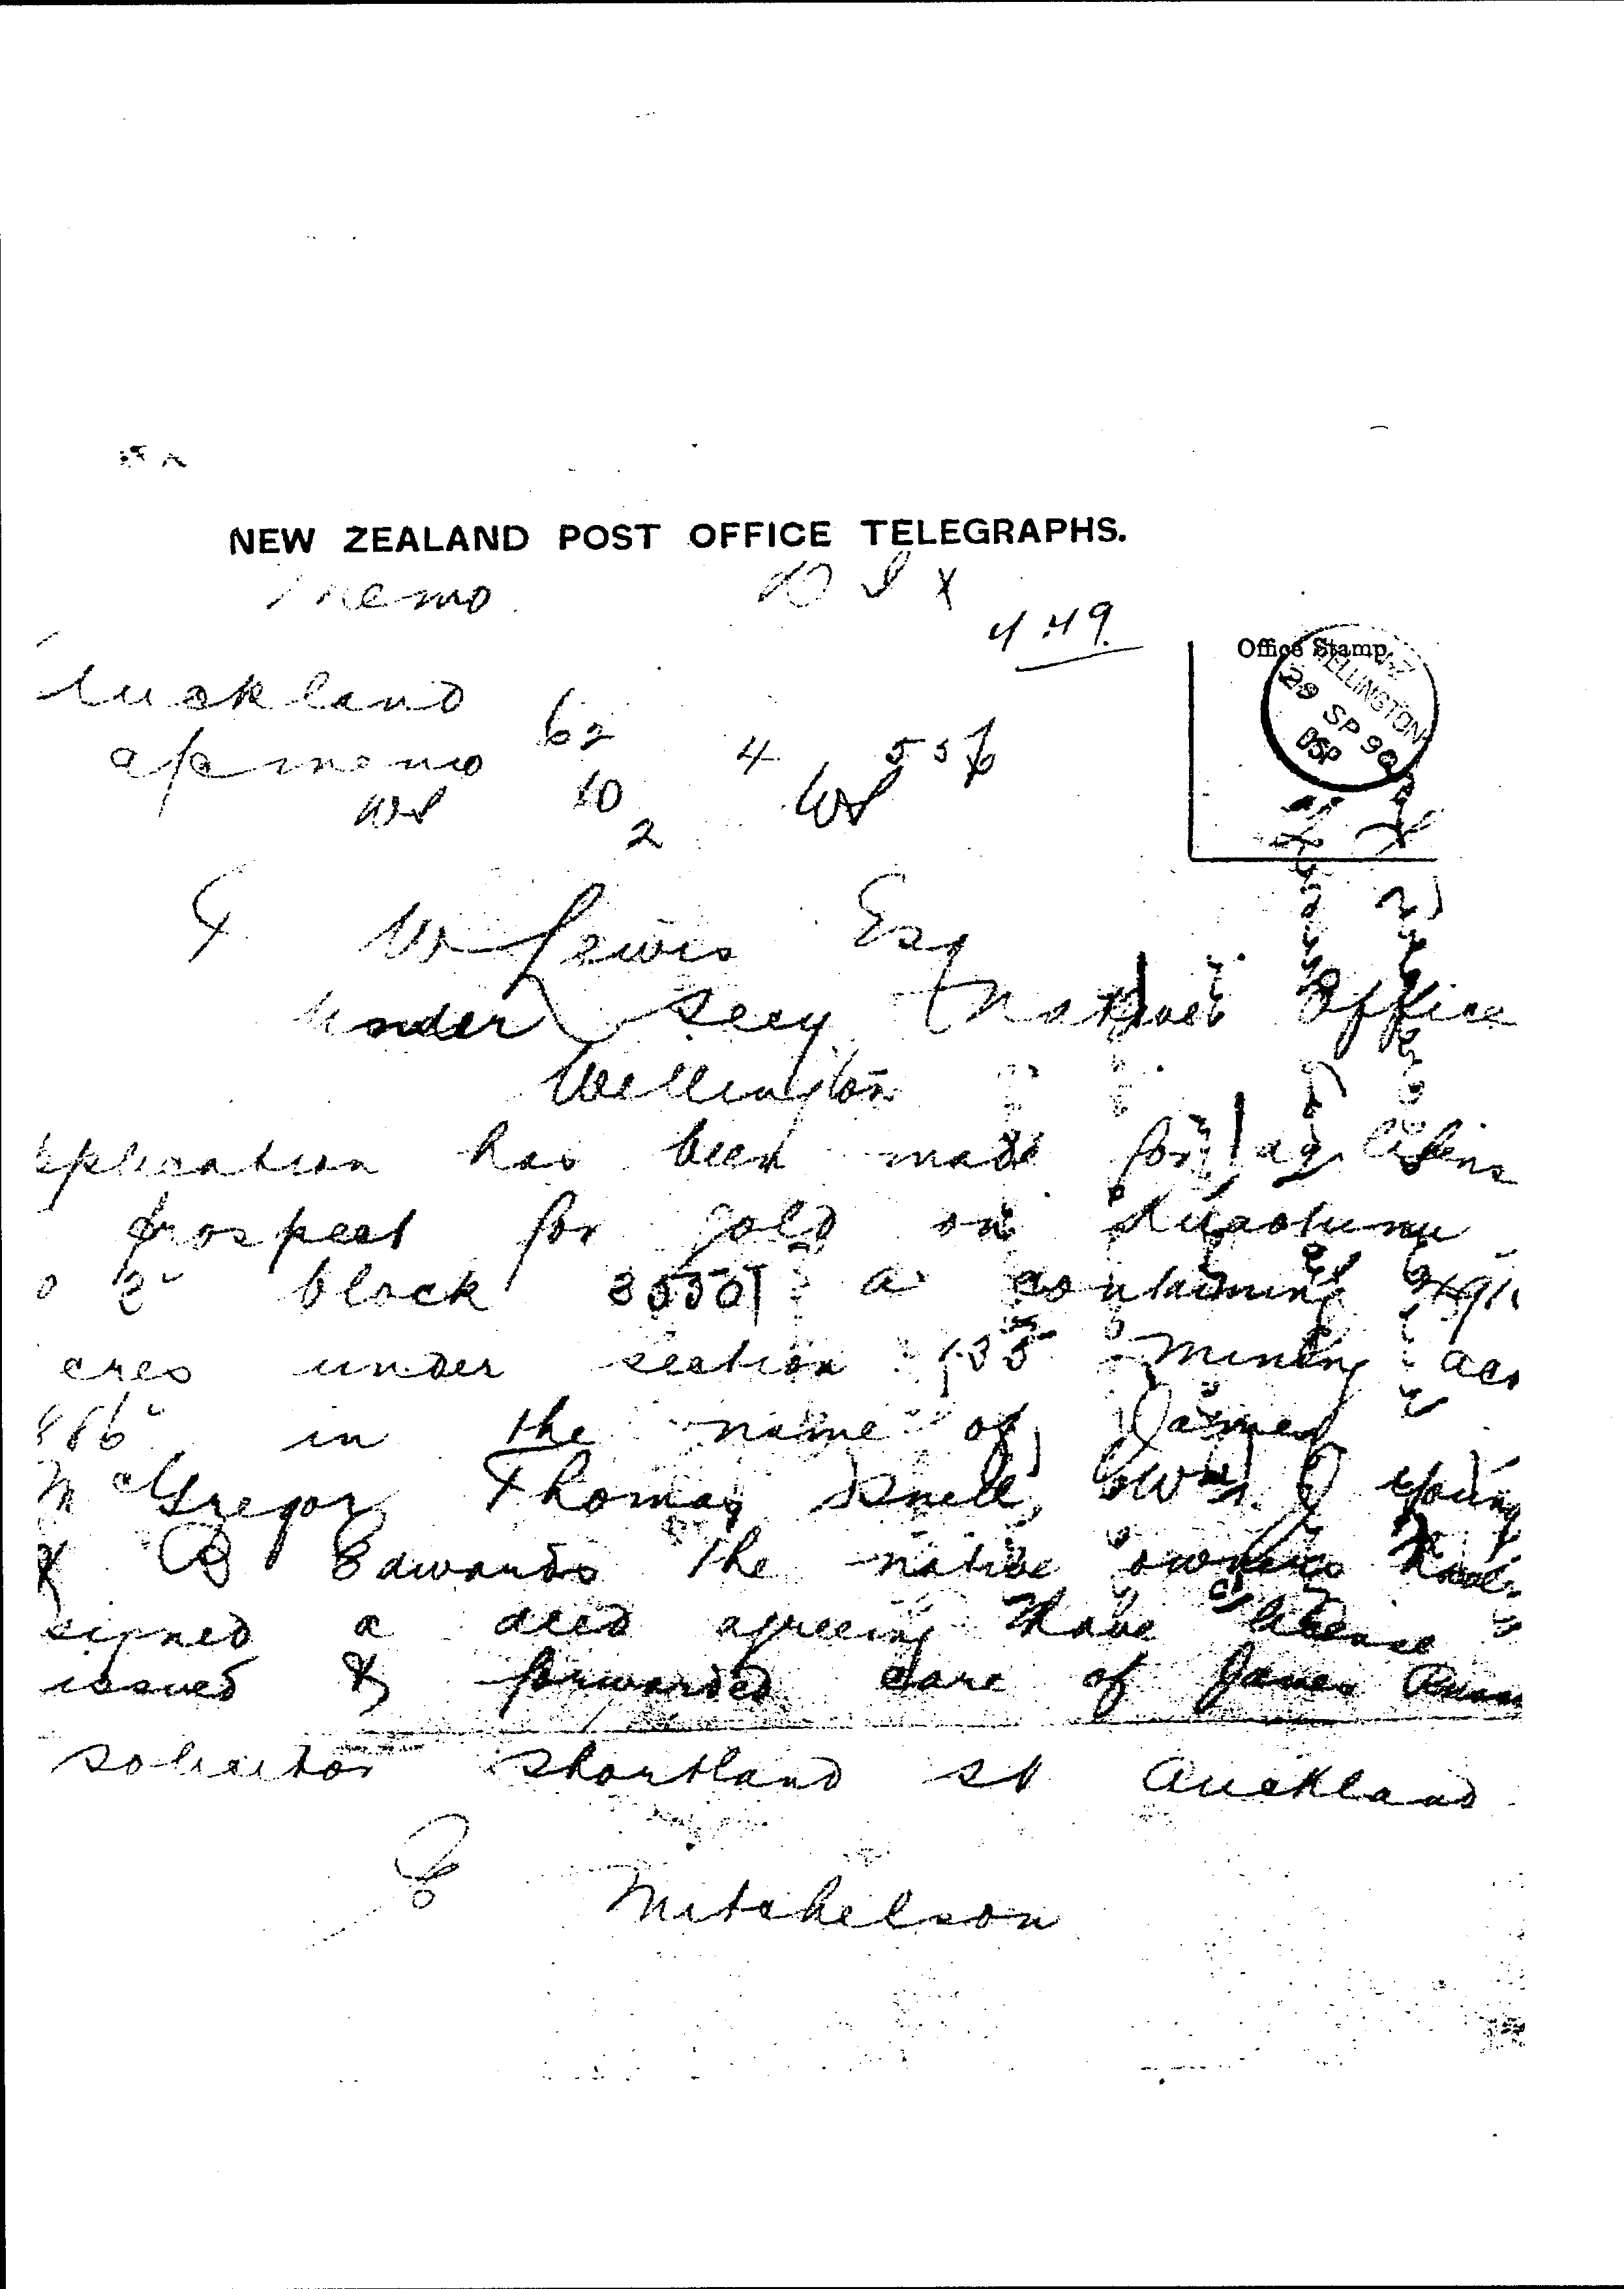 NEW ZEALAND POST OFFICE TELEGRAPHS.
memo
4.49
Office Stamp
WELLINGTON N.Z
29 SP 90
uckland 62
memo 4 55
10
2
T W Lewis Esq
under Secy Native Office
Wellington
pplication has been made for a licens
prospect for gold on Kuaotunu
o 2 block a containing
cres under section 135 mining act
886 in the name of James
McGregor Thomas Snell, Wm J young
& B Edwards the native owners have
signed a deed agreeing have license
issued & forwarded care of James
solicitor shortland st auckland
E Mitchelson